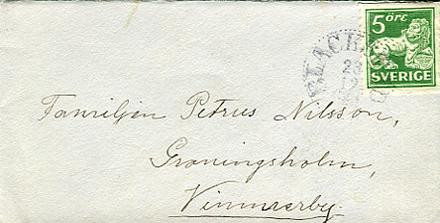 5 ÖRE
SVERIGE
BLACK
28
12
Familjen Petrus Nilsson,
Graningsholm,
Vimmerby.